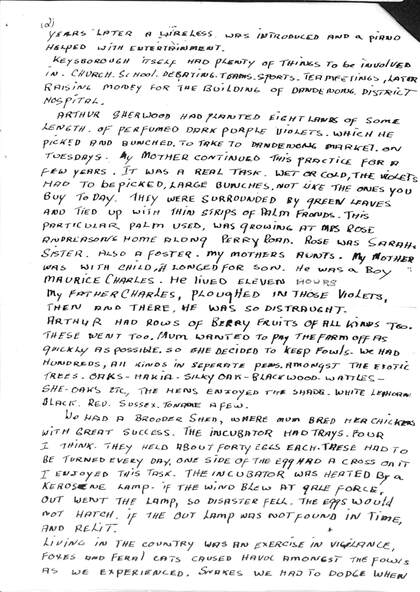 (2)
YEARS LATER A WIRELESS WAS INTRODUCED AND A PIANO
HELPED WITH ENTERTAINMENT.
KEYSBOROUGH ITSELF HAD PLENTY OF THINKS TO BE INVOLVED
IN. CHURCH. SCHOOL. DEBATING. TEAMS. SPORTS. TEAMEETINGS, LATER
RAISING MONEY FOR THE BUILDING OF DANDENONG. DISTRICT
HOSPITAL.
ARTHUR SHERWOOD HAD PLANTED EIGHT LANDS OF SOME
LENGTH. OF PERFUMED DARK PURPLE VIOLETS. WHICH HE
PICKED AND BUNCHED, TO TAKE TO DANDENONG MARKET. ON
TUESDAYS. MY MOTHER CONTINUED THIS PRACTICE FOR A
FEW YEARS. IT WAS A REAL TASK. WET OR COLD, THE VIOLETS
HAD TO BE PICKED, LARGE BUNCHES, NOT LIKE THE ONES YOU
BUY TODAY. THEY WERE SURROUNDED BY GREEN LEAVES
AND TIED UP WITH THIN STRIPS OF PALM FRONDS. THIS
PARTICULAR PALM USED, WAS GROWING AT MRS ROSE
ANDREASON'S HOME ALONG PERRY ROAD. ROSE WAS SARAH.
SISTER. ALSO A FOSTER. MY MOTHERS AUNTS. MY MOTHER
WAS WITH CHILD, A LONGED FOR SON. HE WAS A BOY
MAURICE CHARLES. HE LIVED ELEVEN HOURS
MY FATHER CHARLES, PLOUGHED IN THOSE VIOLETS,
THEN AND THERE, HE WAS SO DISTRAUGHT.
ARTHUR HAD ROWS OF BERRY FRUITS OF ALL KINDS TOO.
THESE WENT TOO. MUM WANTED TO PAY THE FARM OFF AS
QUICKLY AS POSSIBLE. SO SHE DECIDED TO KEEP FOWLS. WE HAD
HUNDREDS, ALL KINDS IN SEPERATE PENS. AMONGST THE EXOTIC
TREES. OAKS - HAKIA - SILKY OAK - BLACKWOOD - WATTLES -
SHE-OAKS ETC, THE HENS ENJOYED THE SHADE. WHITE LEGHORN
BLACK. RED. SUSSEX. TO NAME A FEW.
WE HAD A BROODER SHED, WHERE MUM BRED HER CHICKENS
WITH GREAT SUCCESS. THE INCUBATOR HAD TRAYS. FOUR
I THINK. THEY HELD ABOUT FORTY EGGS EACH. THESE HAD TO
BE TURNED EVERY DAY, ONE SIDE OF THE EGG HAD A CROSS ON IT
I ENJOYED THIS TASK. THE INCUBATOR WAS HEATED BY A
KEROSENE LAMP. IF THE WIND BLEW AT GALE FORCE,
OUT WENT THE LAMP, SO DISASTER FELL. THE EGGS WOULD
NOT HATCH. IF THE OUT LAMP WAS NOT FOUND IN TIME,
AND RELIT.
LIVING IN THE COUNTRY WAS AN EXERCISE IN VIGILANCE,
FOXES AND FERAL CATS CAUSED HAVOC AMONGST THE FOWLS
AS WE EXPERIENCED. SNAKES WE HAD TO DODGE WHEN